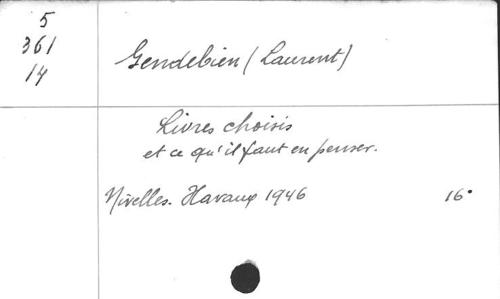 5
361
14
Gendebien (Laurent)
Livres choisis
et ce qu'il faut en penser.
Nivelles. Havaux 1946 16°